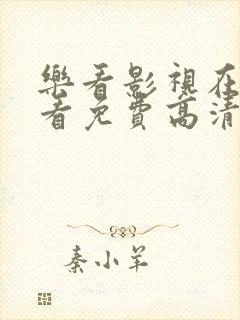 樂看影視在
看免費高清
秦小羊